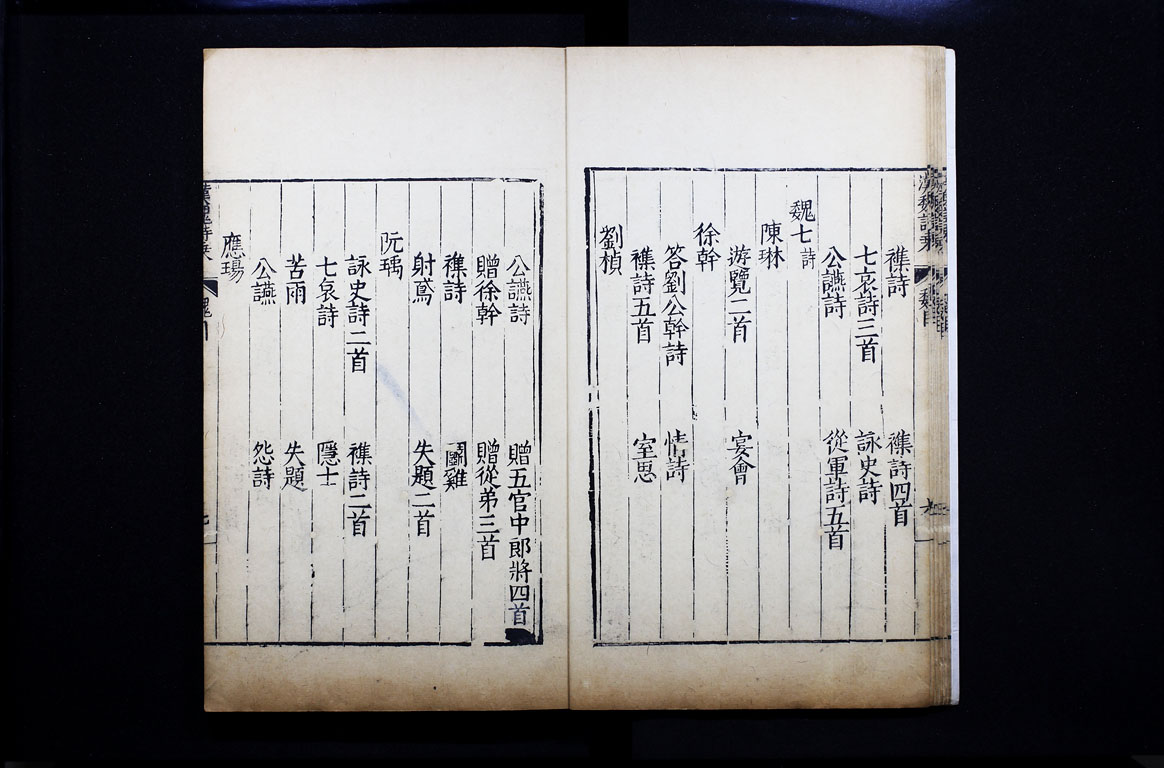 漢魏詩乘 魏目
襍詩 襍詩四首
七哀詩三首 詠史詩
公讌詩 從軍詩五首
魏七詩
陳琳
游覽二首 宴會
徐幹
答劉公幹詩 情詩
襍詩五首 室思
劉楨
公讌詩 贈五官中郎將四首
贈徐幹 贈從弟三首
襍詩 鬭雞
射鳶 失題二首
阮瑀
詠史詩二首 襍詩二首
七哀詩 隱士
苦雨 失題
公讌 怨詩
應瑒